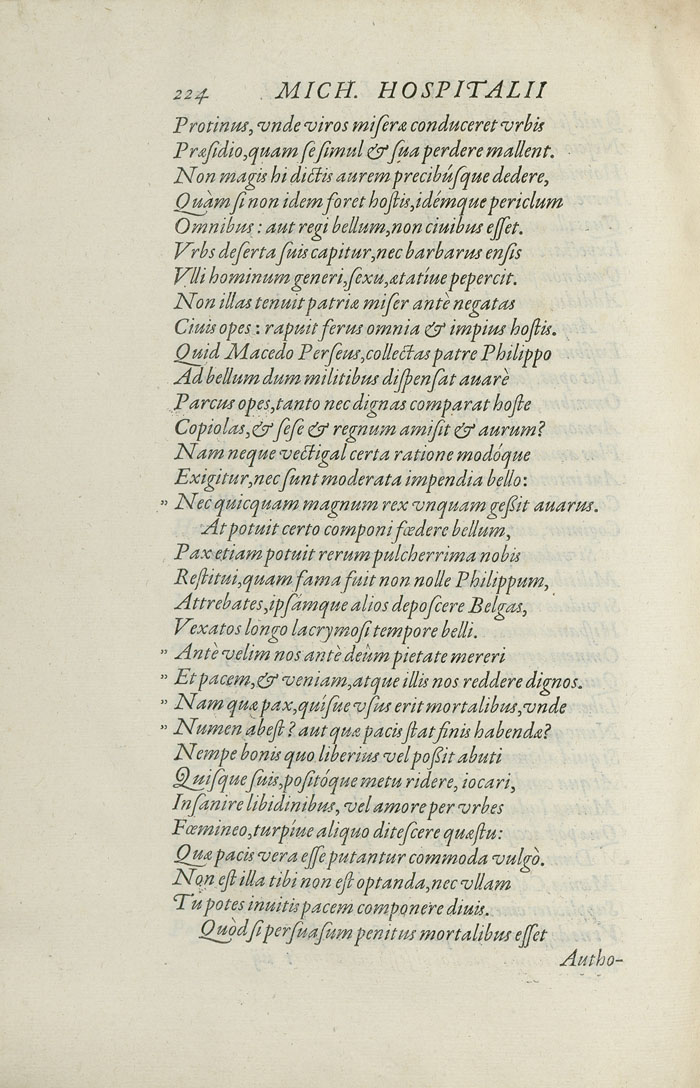 224 MICH. HOSPITALII
Protinus, vnde viros miseræ conduceret vrbis
Præsidio, quam se simul & sua perdere mallent.
Non magis hi dictis aurem precibúsque dedere,
Quàm si non idem foret hostis, idémque periclum
Omnibus: aut regi bellum, non ciuibus esset.
Vrbs deserta suis capitur, nec barbarus ensis
Vlli hominum generi, sexu, ætatíue pepercit.
Non illas tenuit patriæ miser antè negatas
Ciuis opes: rapuit ferus omnia & impius hostis.
Quid Macedo Perseus, collectas patre Philippo
Ad bellum dum militibus dispensat auarè
Parcus opes, tanto nec dignas comparat hoste
Copiolas, & sese & regnum amisit & aurum?
Nam neque vectigal certa ratione modóque
Exigitur, nec sunt moderata impendia bello:
" Nec quicquam magnum rex vnquam geßit auarus.
At potuit certo componi fœdere bellum,
Pax etiam potuit rerum pulcherrima nobis
Restitui, quam fama fuit non nolle Philippum,
Attrebates, ipsámque alios deposcere Belgas,
Vexatos longo lacrymosi tempore belli.
" Antè velim nos antè deûm pietate mereri
" Et pacem, & veniam, atque illis nos reddere dignos.
" Nam quæ pax, quísue vsus erit mortalibus, vnde
" Numen abest? aut quæ pacis stat finis habendæ?
Nempe bonis quo liberius vel poßit abuti
Quisque suis, positóque metu ridere, iocari,
Insanire libidinibus, vel amore per vrbes
Fœmineo, turpíue aliquo ditescere quæstu:
Quæ pacis vera esse putantur commoda vulgò.
Non est illa tibi non est optanda, nec vllam
Tu potes inuitis pacem componere diuis.
Quòd si persuasum penitus mortalibus esset
Autho-